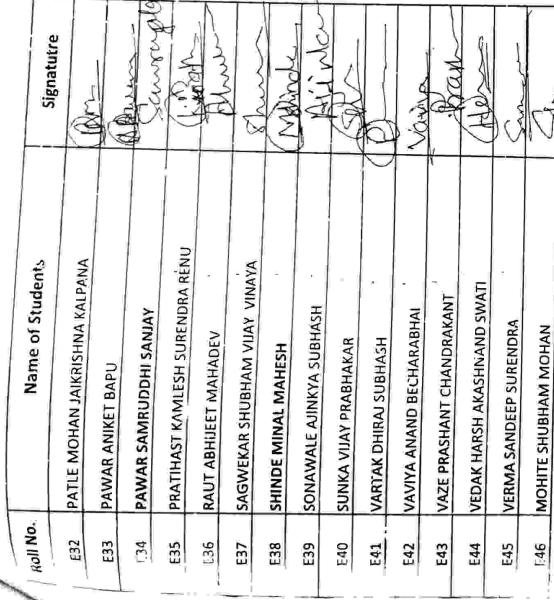 Roll No. Name of Students Signatutre
E32 PATLE MOHAN JAIKRISHNA KALPANA
E33 PAWAR ANIKET BAPU
E34 PAWAR SAMRUDDHI SANJAY
E35 PRATIHAST KAMLESH SURENDRA RENU
E36 RAUT ABHIJEET MAHADEV
E37 SAGWEKAR SHUBHAM VIJAY VINAYA
E38 SHINDE MINAL MAHESH
E39 SONAWALE AJINKYA SUBHASH
E40 SUNKA VIJAY PRABHAKAR
E41 VARTAK DHIRAJ SUBHASH
E42 VAVIYA ANAND BECHARABHAI
E43 VAZE PRASHANT CHANDRAKANT
E44 VEDAK HARSH AKASHNAND SWATI
E45 VERMA SANDEEP SURENDRA
E46 MOHITE SHUBHAM MOHAN